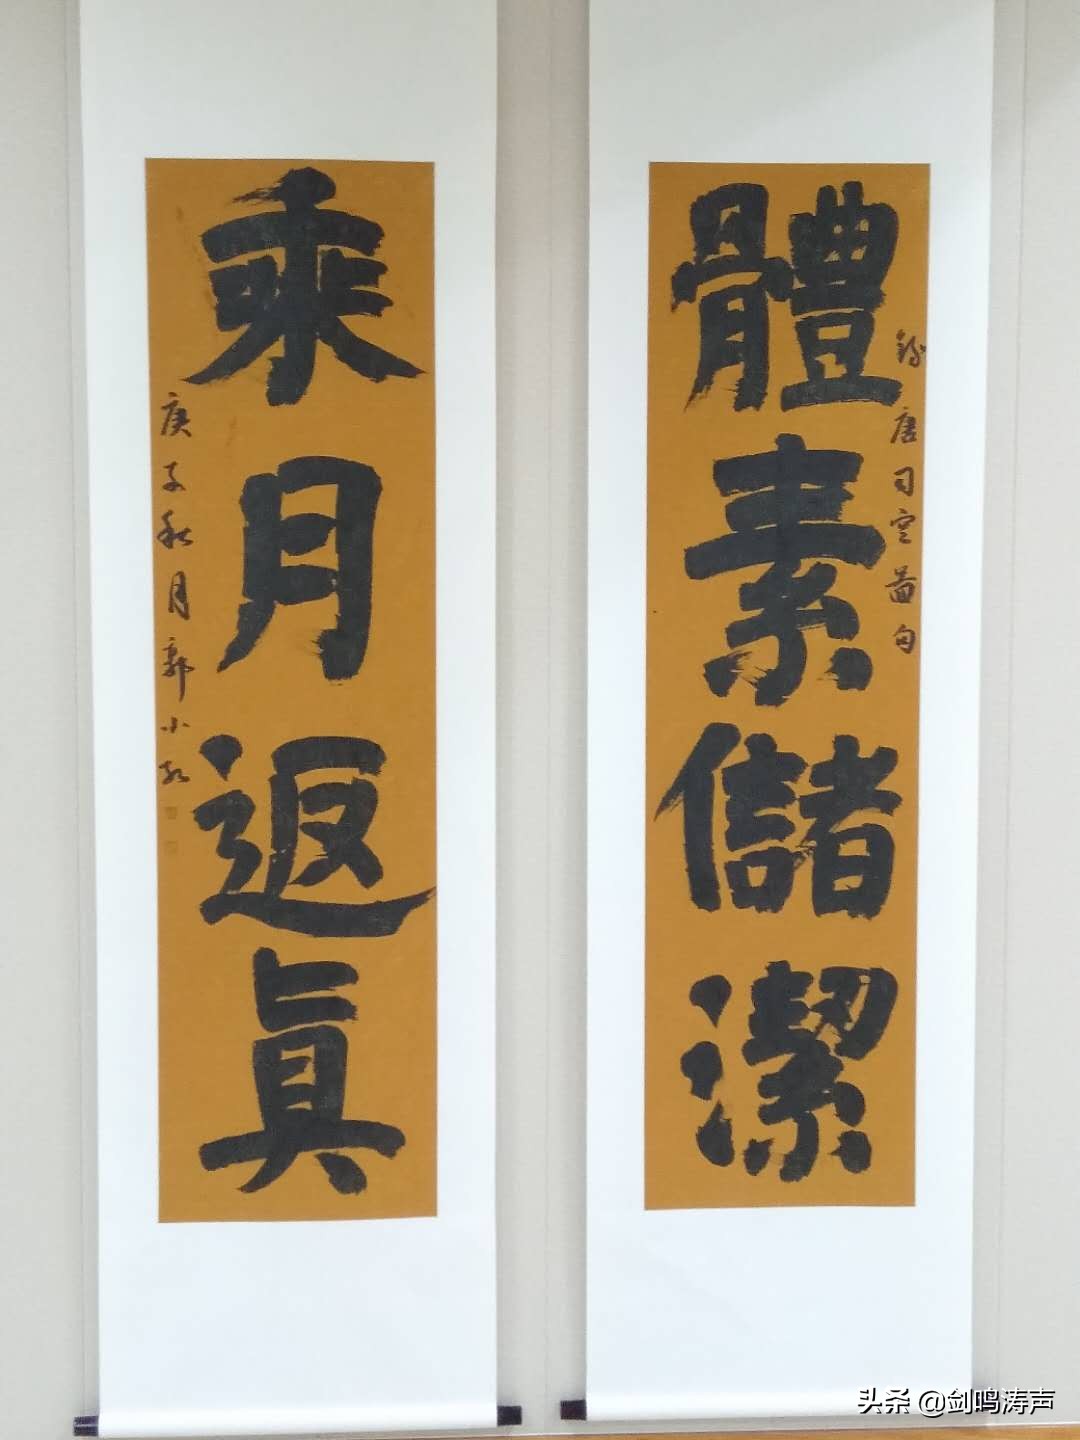 體素儲潔
錄唐司空圖句
乘月返真
庚子秋月郭小
头条 @剑鸣涛声